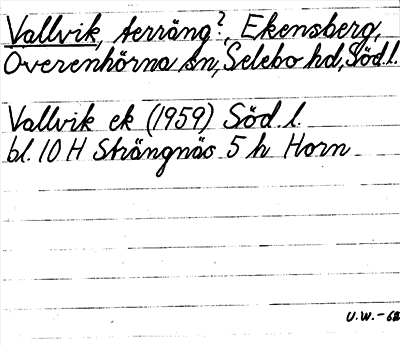 Vallvik, terräng?, Ekensberg,
Överenhörna sn, Selebo hd, Söd. l.
Vallvik ek (1959) Söd. l.
bl. 10 H Strängnäs 5 h Horn
U.W. -62